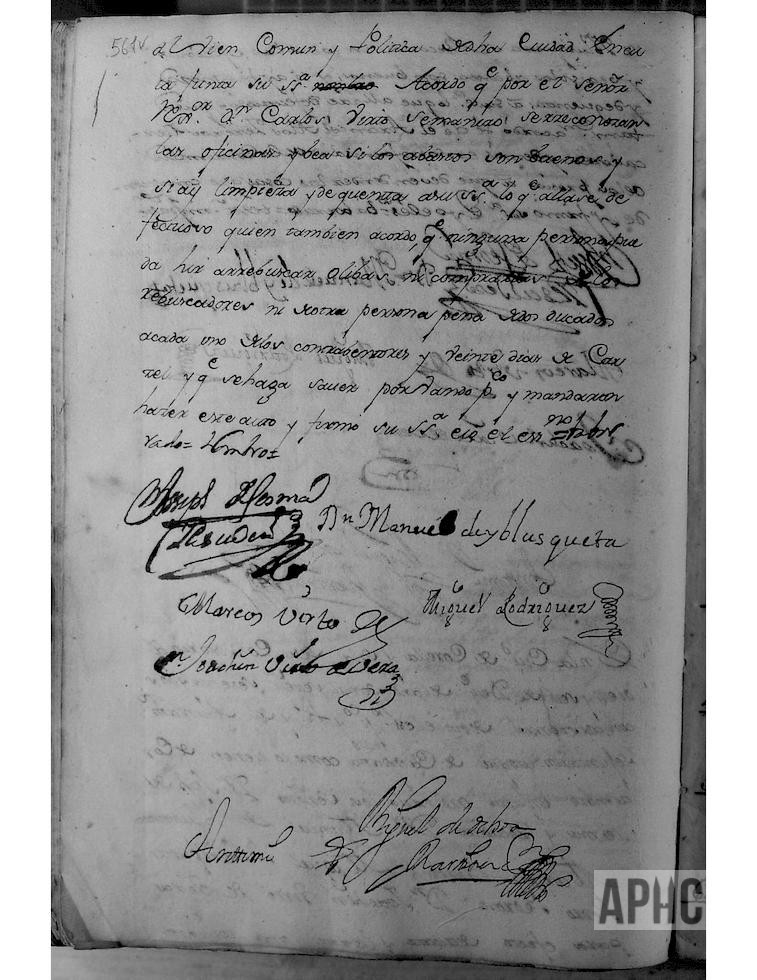 561v
al vien Comun y Politica de dha Ciudad En cu
ia Junta su Sª nonbro Acordo qᵉ por el Señor
Dn Carlos Virto Semanero se rreconozcan
las oficinas y bea si los abastos son buenos y
si ay limpieza y de quenta a su Sª lo qᵉ allase de
fectuoso quien tambien acordo, qᵉ ninguna persona pue
da hir a rrebuscar olibas ni comprarlas de los
rebuscadores ni de otra persona pena de dos ducados
a cada uno de los contrabentores y veinte dias de Car
zel y qᵉ se haga saver por vando pᶜᵒ y mandaron
hazer este auto y firmo su Sª e yo el essⁿᵒ
rado= nonbro=
Joseph de Lerma
Dn Manuel de yblusqueta
Marcos Virto
Miguel Rodriguez
Joachin Virto de Vera
Miguel de
Antte mi
APHC